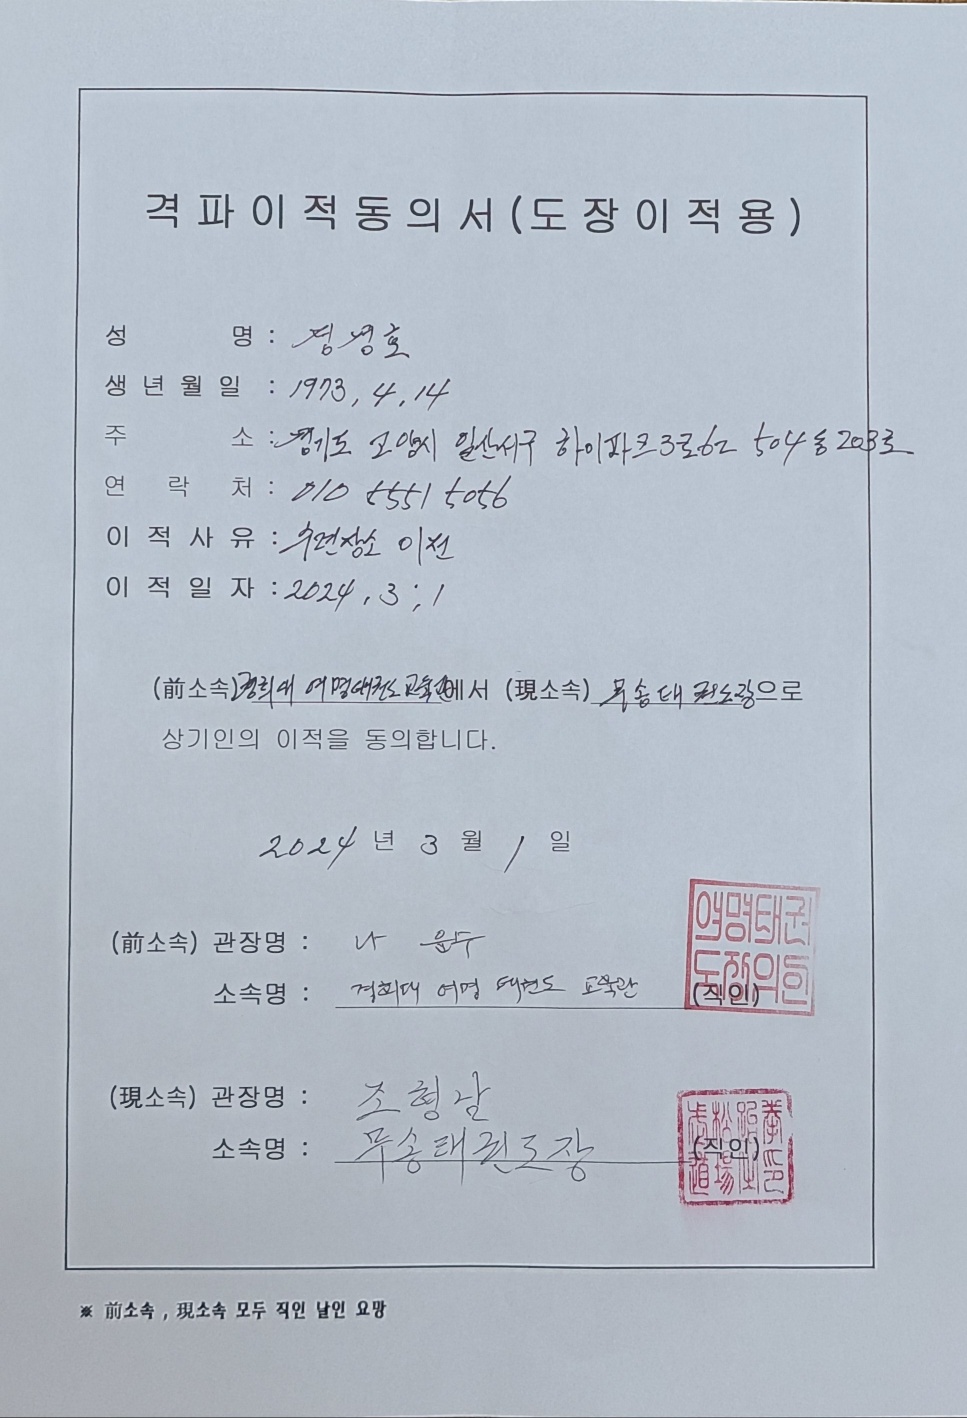 격파이적동의서(도장이적용)
성 명 : 정영호
생년월일 : 1973. 4. 14
주 소 : 경기도 고양시 일산서구 하이파크3로62 504동 203호
연 락 처 : 010 5551 5056
이적사유 : 수련장소 이전
이적일자 : 2024. 3. 1
(前소속)경희대 여명태권도 교육관에서 (現소속) 무송태권도장으로
상기인의 이적을 동의합니다.
2024 년 3 월 1 일
(前소속) 관장명 : 나 윤수
소속명 : 경희대 여명 태권도 교육관 (직인)
여명태권
도장의인
(現소속) 관장명 : 조형남
소속명 : 무송태권도장 (직인)
※ 前소속 , 現소속 모두 직인 날인 요망